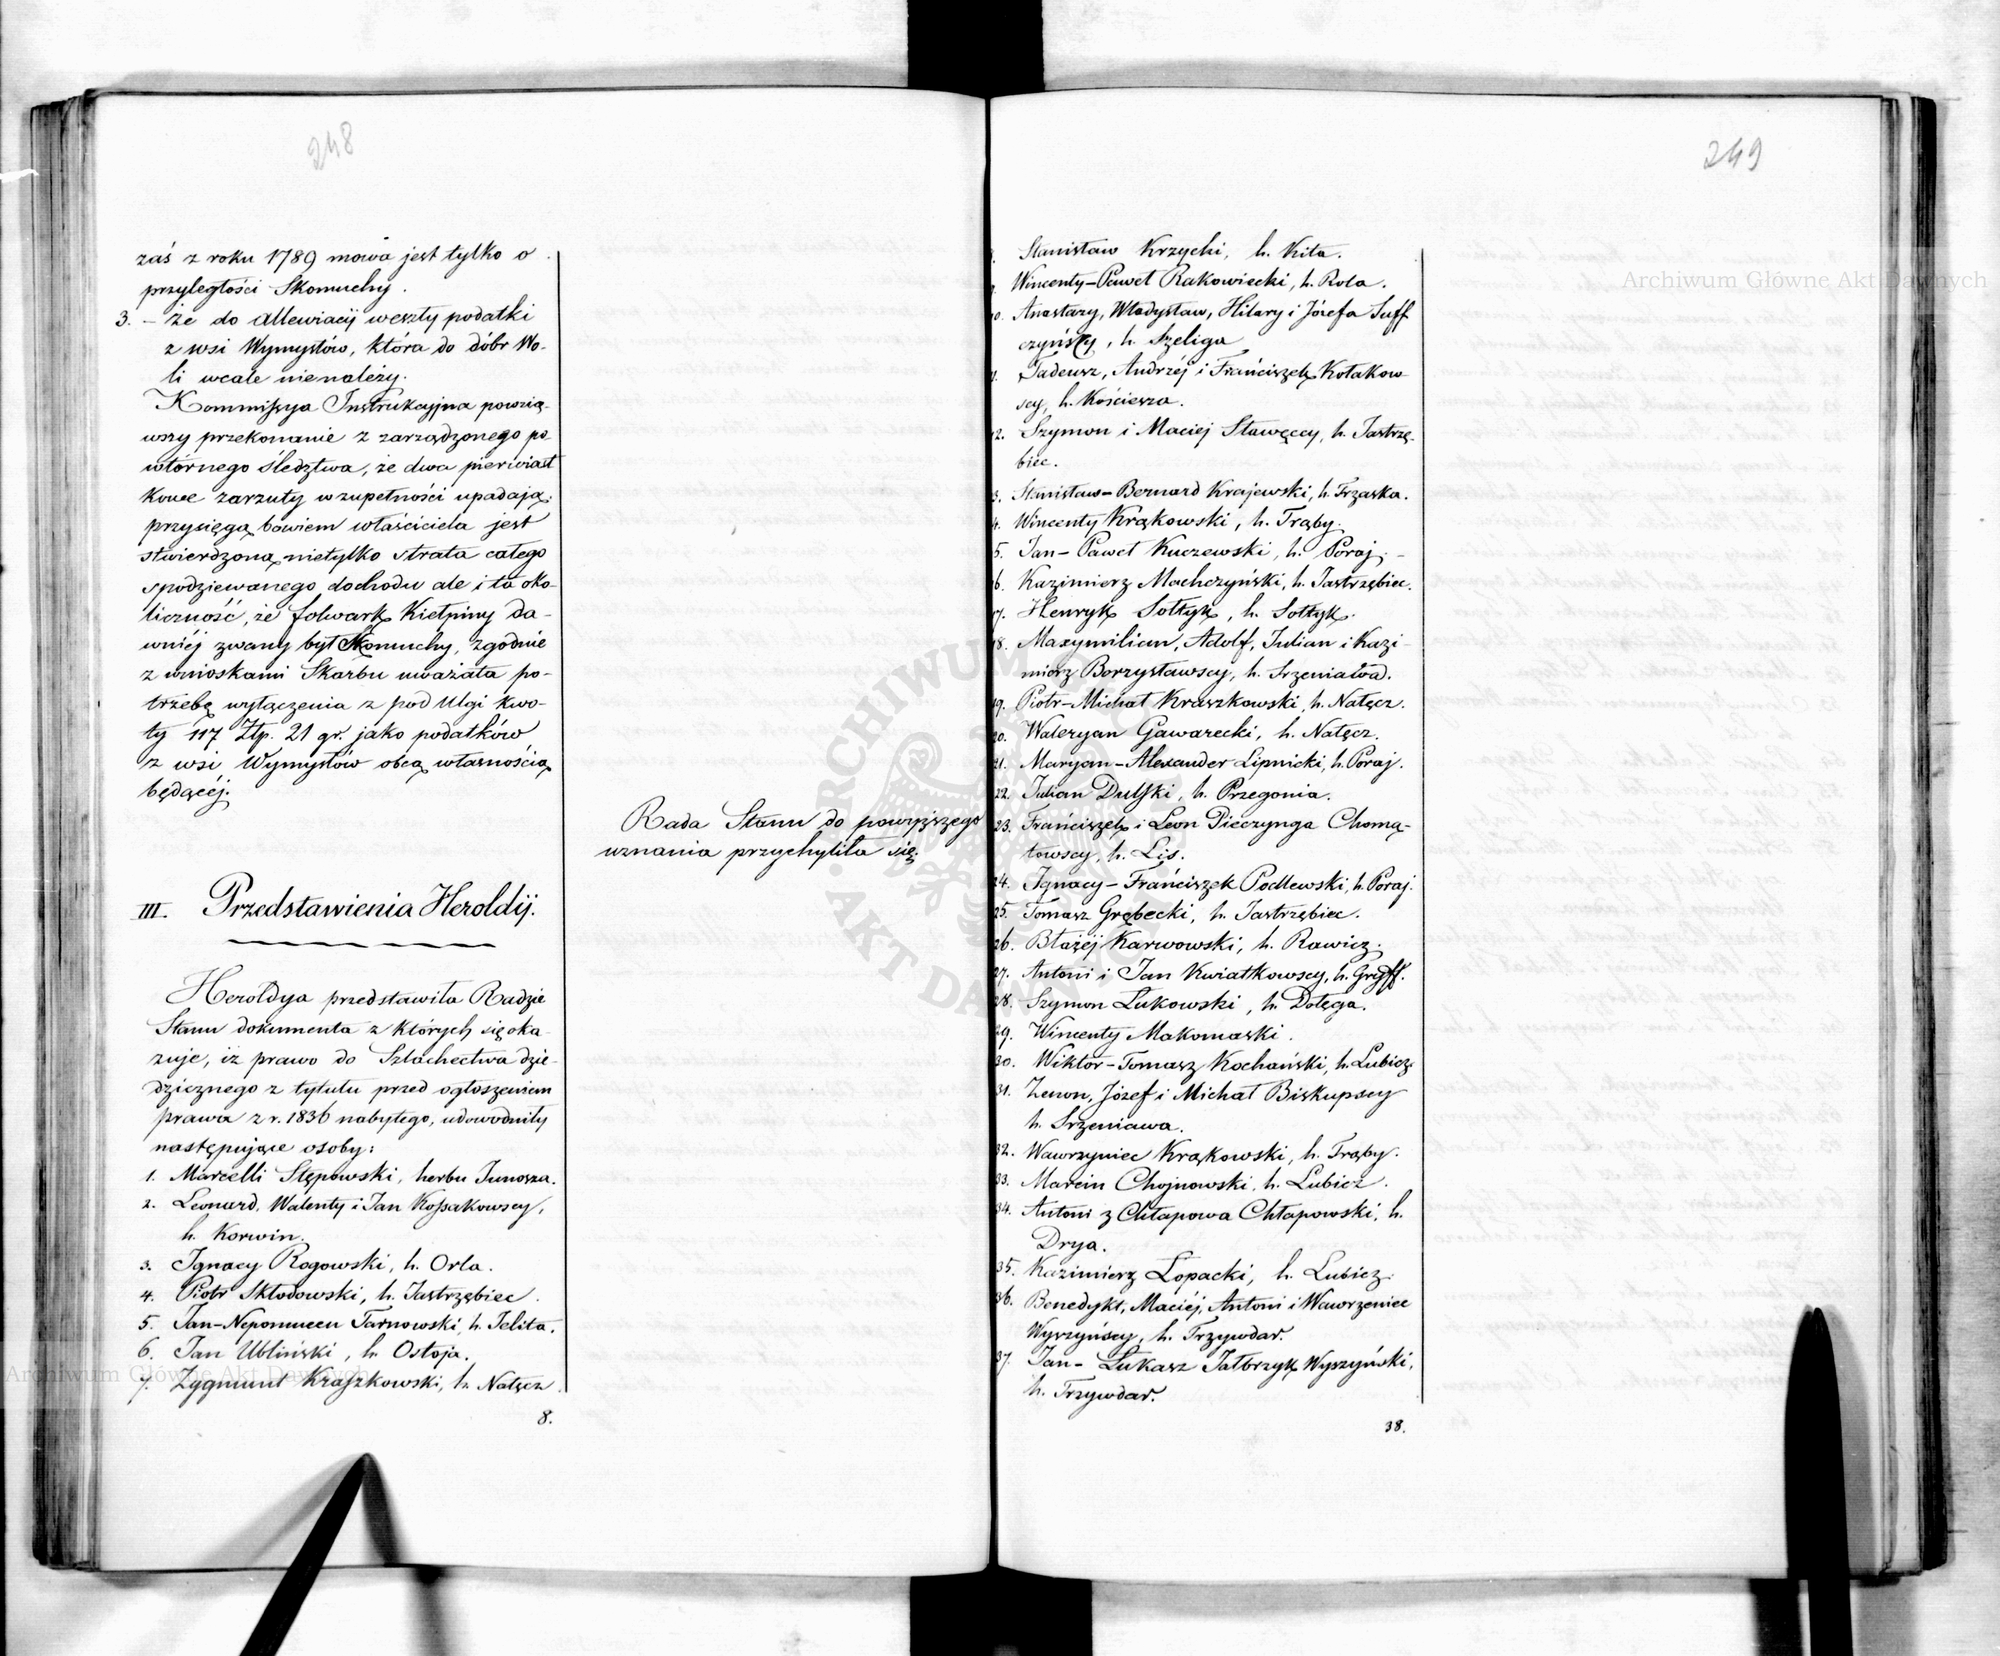 248
zaś z roku 1789 mowa jest tylko o
przyległości Skomuchy.
3. – że do allewiacyi weszły podatki
z wsi Wymysłów, która do dóbr Wo-
li wcale nienależy.
Kommissya Instrukcyjna powzią-
wszy przekonanie z zarządzonego po-
wtórnego śledztwa, że dwa pierwiast
kowe zarzuty w zupełności upadają;
przysięgą bowiem właściciela jest
stwierdzoną nietylko strata całego
spodziewanego dochodu ale i ta oko-
liczność, że folwark Kiełpiny da-
wniéj zwany był Skomuchy, zgodnie
z wnioskami Skarbu uważała po-
trzebę wyłączenia z pod Ulgi kwo-
ty 117 Złp. 21 gr. jako podatków
z wsi Wymysłów obcą własnością
będącéj.
Rada Stanu do powyższego
uznania przychyliła się.
III. Przedstawienia Heroldij.
Heroldya przedstawiła Radzie
Stanu dokumenta z których się oka-
zuje, iż prawo do Szlachectwa dzie-
dzicznego z tytułu przed ogłoszeniem
prawa z r. 1836 nabytego, udowodniły
następujące osoby:
1. Marcelli Stępowski, herbu Junosza.
2. Leonard, Walenty i Jan Kossakowscy,
h. Korwin.
3. Ignacy Rogowski, h. Orla.
4. Piotr Skłodowski, h. Jastrzębiec.
5. Jan-Nepomucen Tarnowski, h. Jelita.
6. Jan Ubliński, h. Ostoja.
7. Zygmunt Kraszkowski, h. Nałęcz.
8.
249
Stanisław Krzycki, h. Kita.
Wincenty-Paweł Rakowiecki, h. Rola.
10. Anastazy, Władysław, Hilary i Józefa Suff
czyńscy, h. Szeliga
Tadeusz, Andrzéj i Franciszek Kołakow-
scy, h. Kościesza.
12. Szymon i Maciej Sławęccy, h. Jastrzę-
biec.
3. Stanisław-Bernard Krajewski, h. Trzaska.
4. Wincenty Krąkowski, h. Trąby.
5. Jan-Paweł Kuczewski, h. Poraj. –
16. Kazimierz Machczyński, h. Jastrzębiec.
17. Henryk Sołtyk, h. Sołtyk.
18. Maxymilian, Adolf, Julian i Kazi-
mierz Borzysławscy, h. Srzeniawa.
19. Piotr-Michał Kraszkowski, h. Nałęcz.
20. Waleryan Gawarecki, h. Nałęcz.
21. Maryan-Alexander Lipnicki, h. Poraj.
22. Julian Dulski, h. Przegonia.
23. Franciszek i Leon Pieczynga Chomą-
towscy, h. Lis.
24. Ignacy-Franciszek Podlewski, h. Poraj.
25. Tomasz Grębecki, h. Jastrzębiec.
26. Błażéj Karwowski, h. Rawicz.
27. Antoni i Jan Kwiatkowscy, h. Gryff.
28. Szymon Łukowski, h. Dołęga.
29. Wincenty Makomaski.
30. Wiktor-Tomasz Kochański, h. Lubicz.
31. Zenon, Józef i Michał Biskupscy
h. Srzeniawa.
32. Wawrzyniec Krąkowski, h. Trąby.
33. Marcin Chojnowski, h. Lubicz.
34. Antoni z Chłapowa Chłapowski, h.
Drya.
35. Kazimierz Łopacki, h. Lubicz.
36. Benedykt, Maciéj, Antoni i Wawrzeniec
Wyszyńscy, h. Trzywdar.
37. Jan-Łukasz Jałbrzyk Wyszyński,
h. Trzywdar.
38.
Archiwum Główne Akt Dawnych
Archiwum Główne Akt Dawnych
ARCHIWUM
AKT DAWNYCH